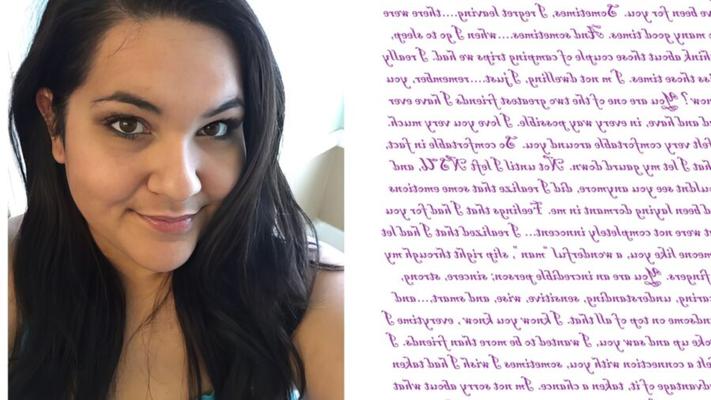 ve been for you. Sometimes, I regret leaving,....there were
many good times. And sometimes....when I go to sleep,
think about those couple of camping trips we had. I really
iss those times. I'm not dwelling, I just....remember, you
now? You are one of the two greatest friends I have ever
ad and have, in every way possible. I love you very much.
felt very comfortable around you. So comfortable, in fact,
hat I let my gaurd down. Not until I left NSU, and
ouldnt see you anymore, did I realize that some emotions
d been laying dormant in me. Feelings that I had for you
at were not completely innocent... I realized that I had let
omeone like you, a wonderful "man", slip right through my
fingers. You are an incredible person; sincere, strong,
aring, understanding, sensitive, wise, and smart,....and
andsome on top of all that. I know, you know', everytime I
oke up and saw you, I wanted to be more than friends. I
elt a connection with you, sometimes I wish I had taken
advantage of it, taken a chance. I'm not sorry about what